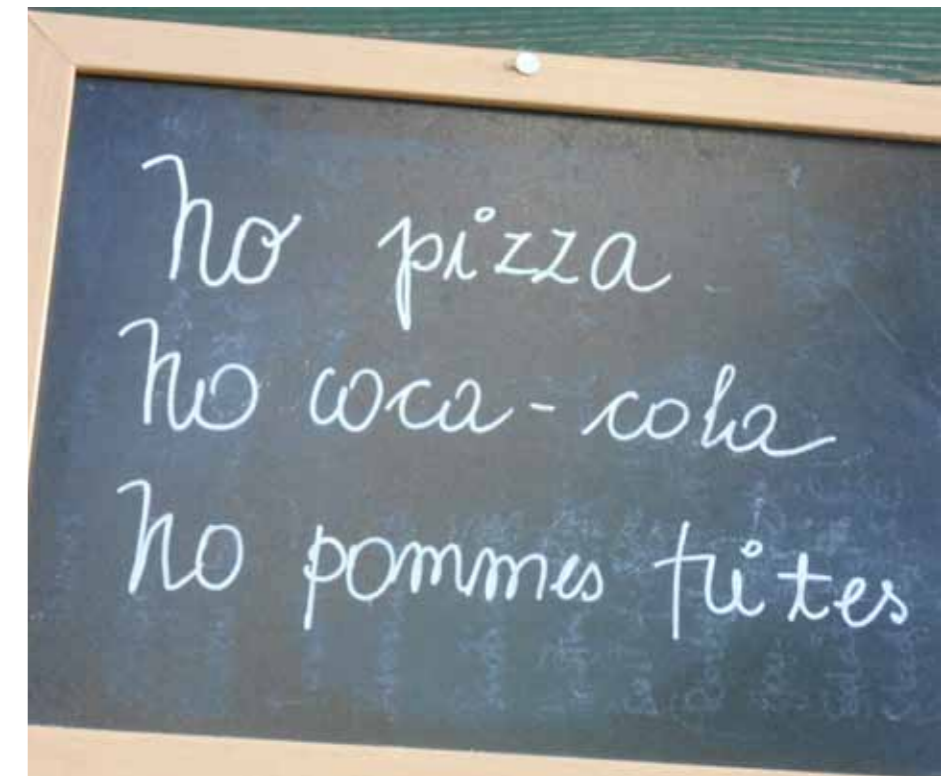 No pizza
No coca-cola
No pommes frites